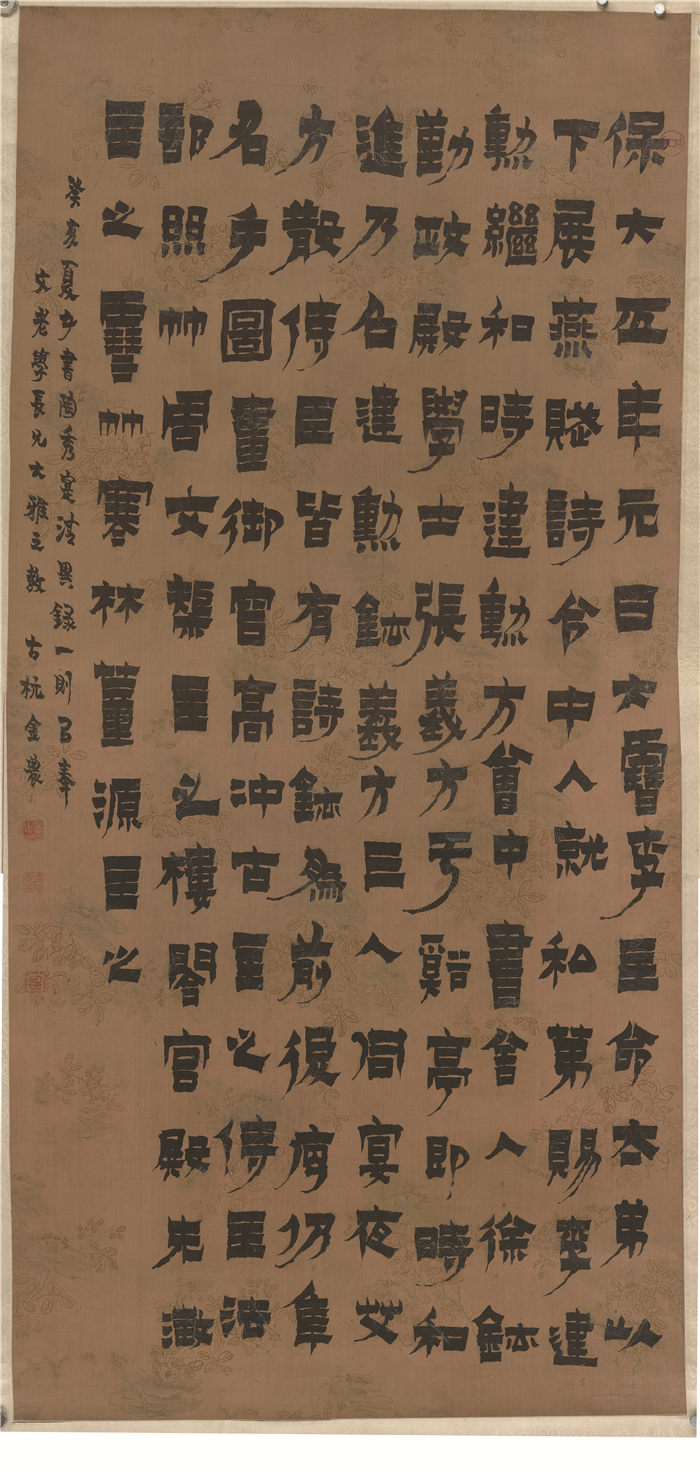 保大五年元日大雪李主命太弟以
下展燕賦詩令中人就私第賜李建
勲繼和時建勲方會中書舍人徐鉉
勤政殿學士張義方于谿亭即時和
進乃召建勲鉉義方三人同宴夜艾
方散侍臣皆有詩鉉為前後序仍集
名手圖畫御容高沖古主之侍臣法
部照竹周文榘主之樓閣宮殿朱澂
主之雪竹寒林董源主之
癸亥夏書陶秀實清異録一則㠯奉
文老學長兄大雅之教 古杭金農